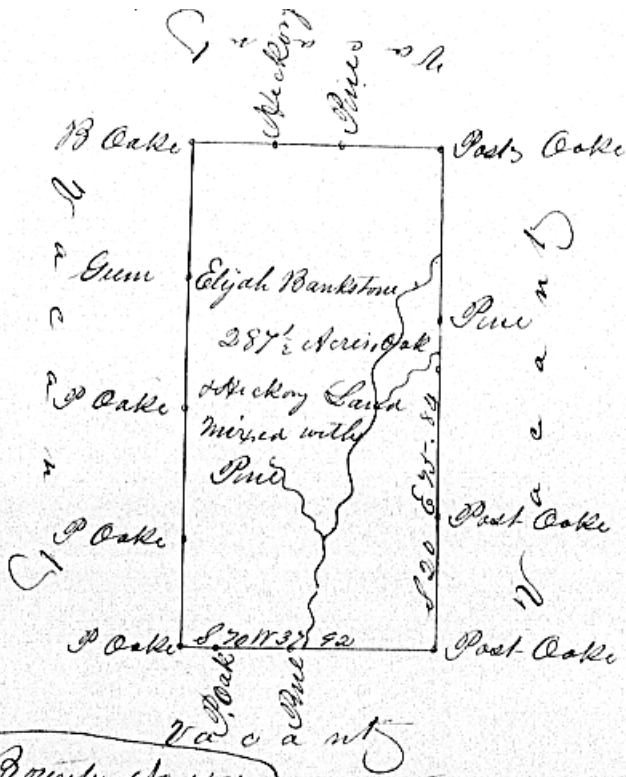 Vacant
Hickory
Pine
B Oake
Post Oake
Vacant
Vacant
Gum
Elijah Bankstone
287½ Acres, Oak
& Hickory Land
mixed with
Pine
Pine
P Oake
P Oake
Post Oake
S 20 E 75.84
P Oake
S 70 W 37 92
Post Oake
P. Oak
Pine
Vacant